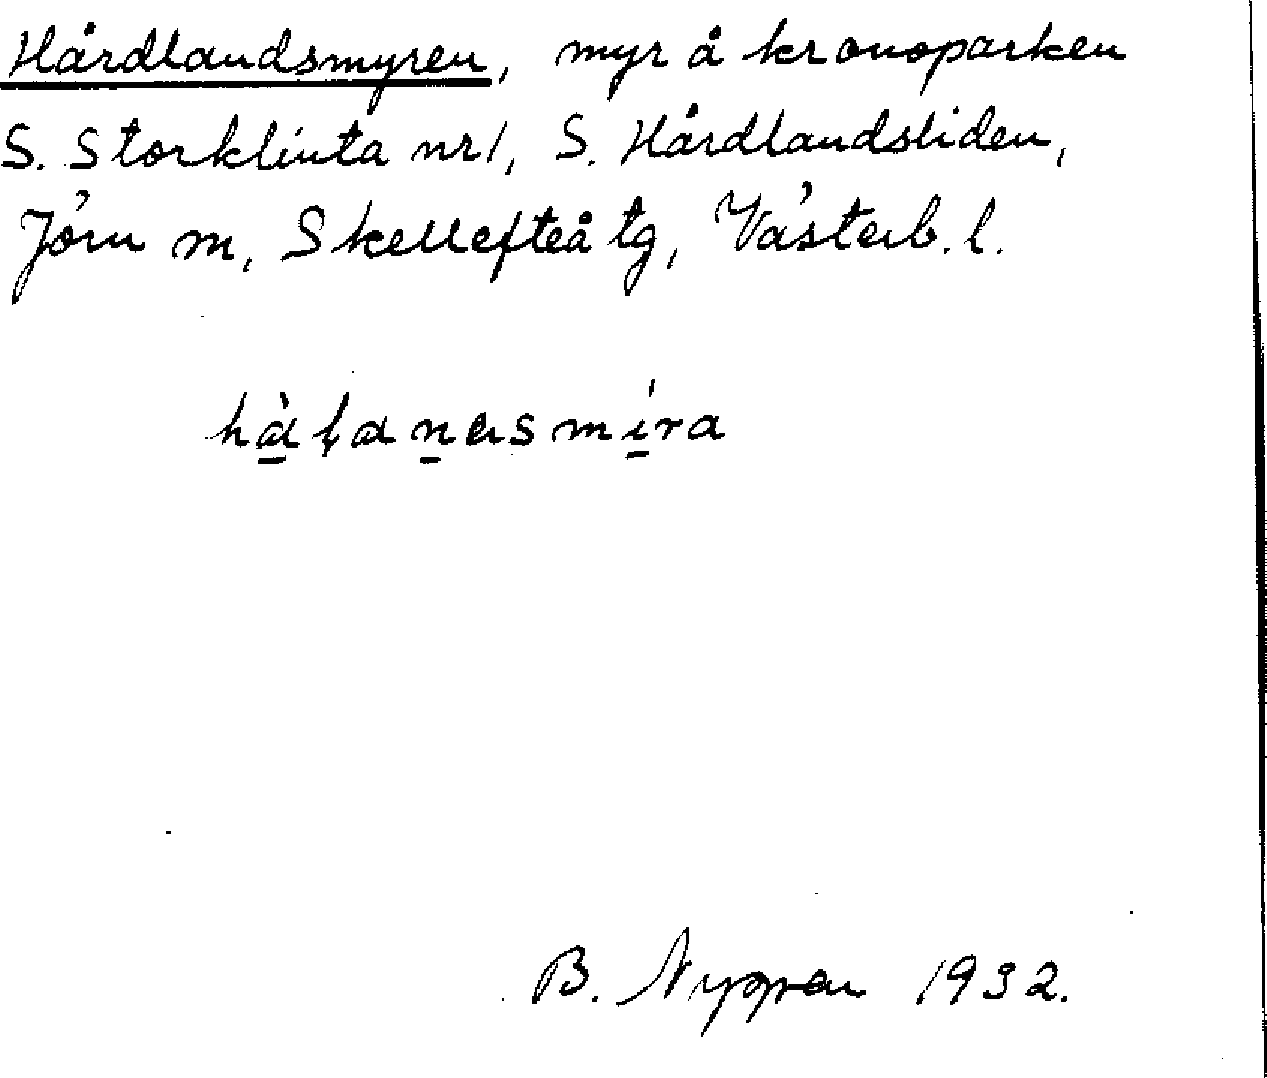 Hårdlandsmyren, myr å kronoparken
S. Storklinta nr 1, S. Hårdlandsliden,
Jörn sn, Skellefteå tg, Västerb. l.
B. Nygren 1932.